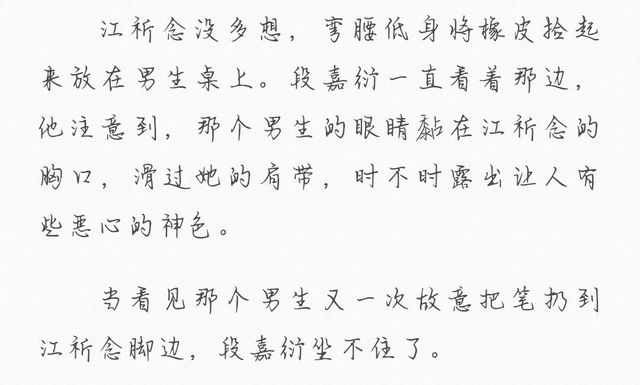 江祈念没多想，弯腰低身将橡皮拾起
来放在男生桌上。段嘉衍一直看着那边，
他注意到，那个男生的眼睛黏在江祈念的
胸口，滑过她的肩带，时不时露出让人有
些恶心的神色。
当看见那个男生又一次故意把笔扔到
江祈念脚边，段嘉衍坐不住了。